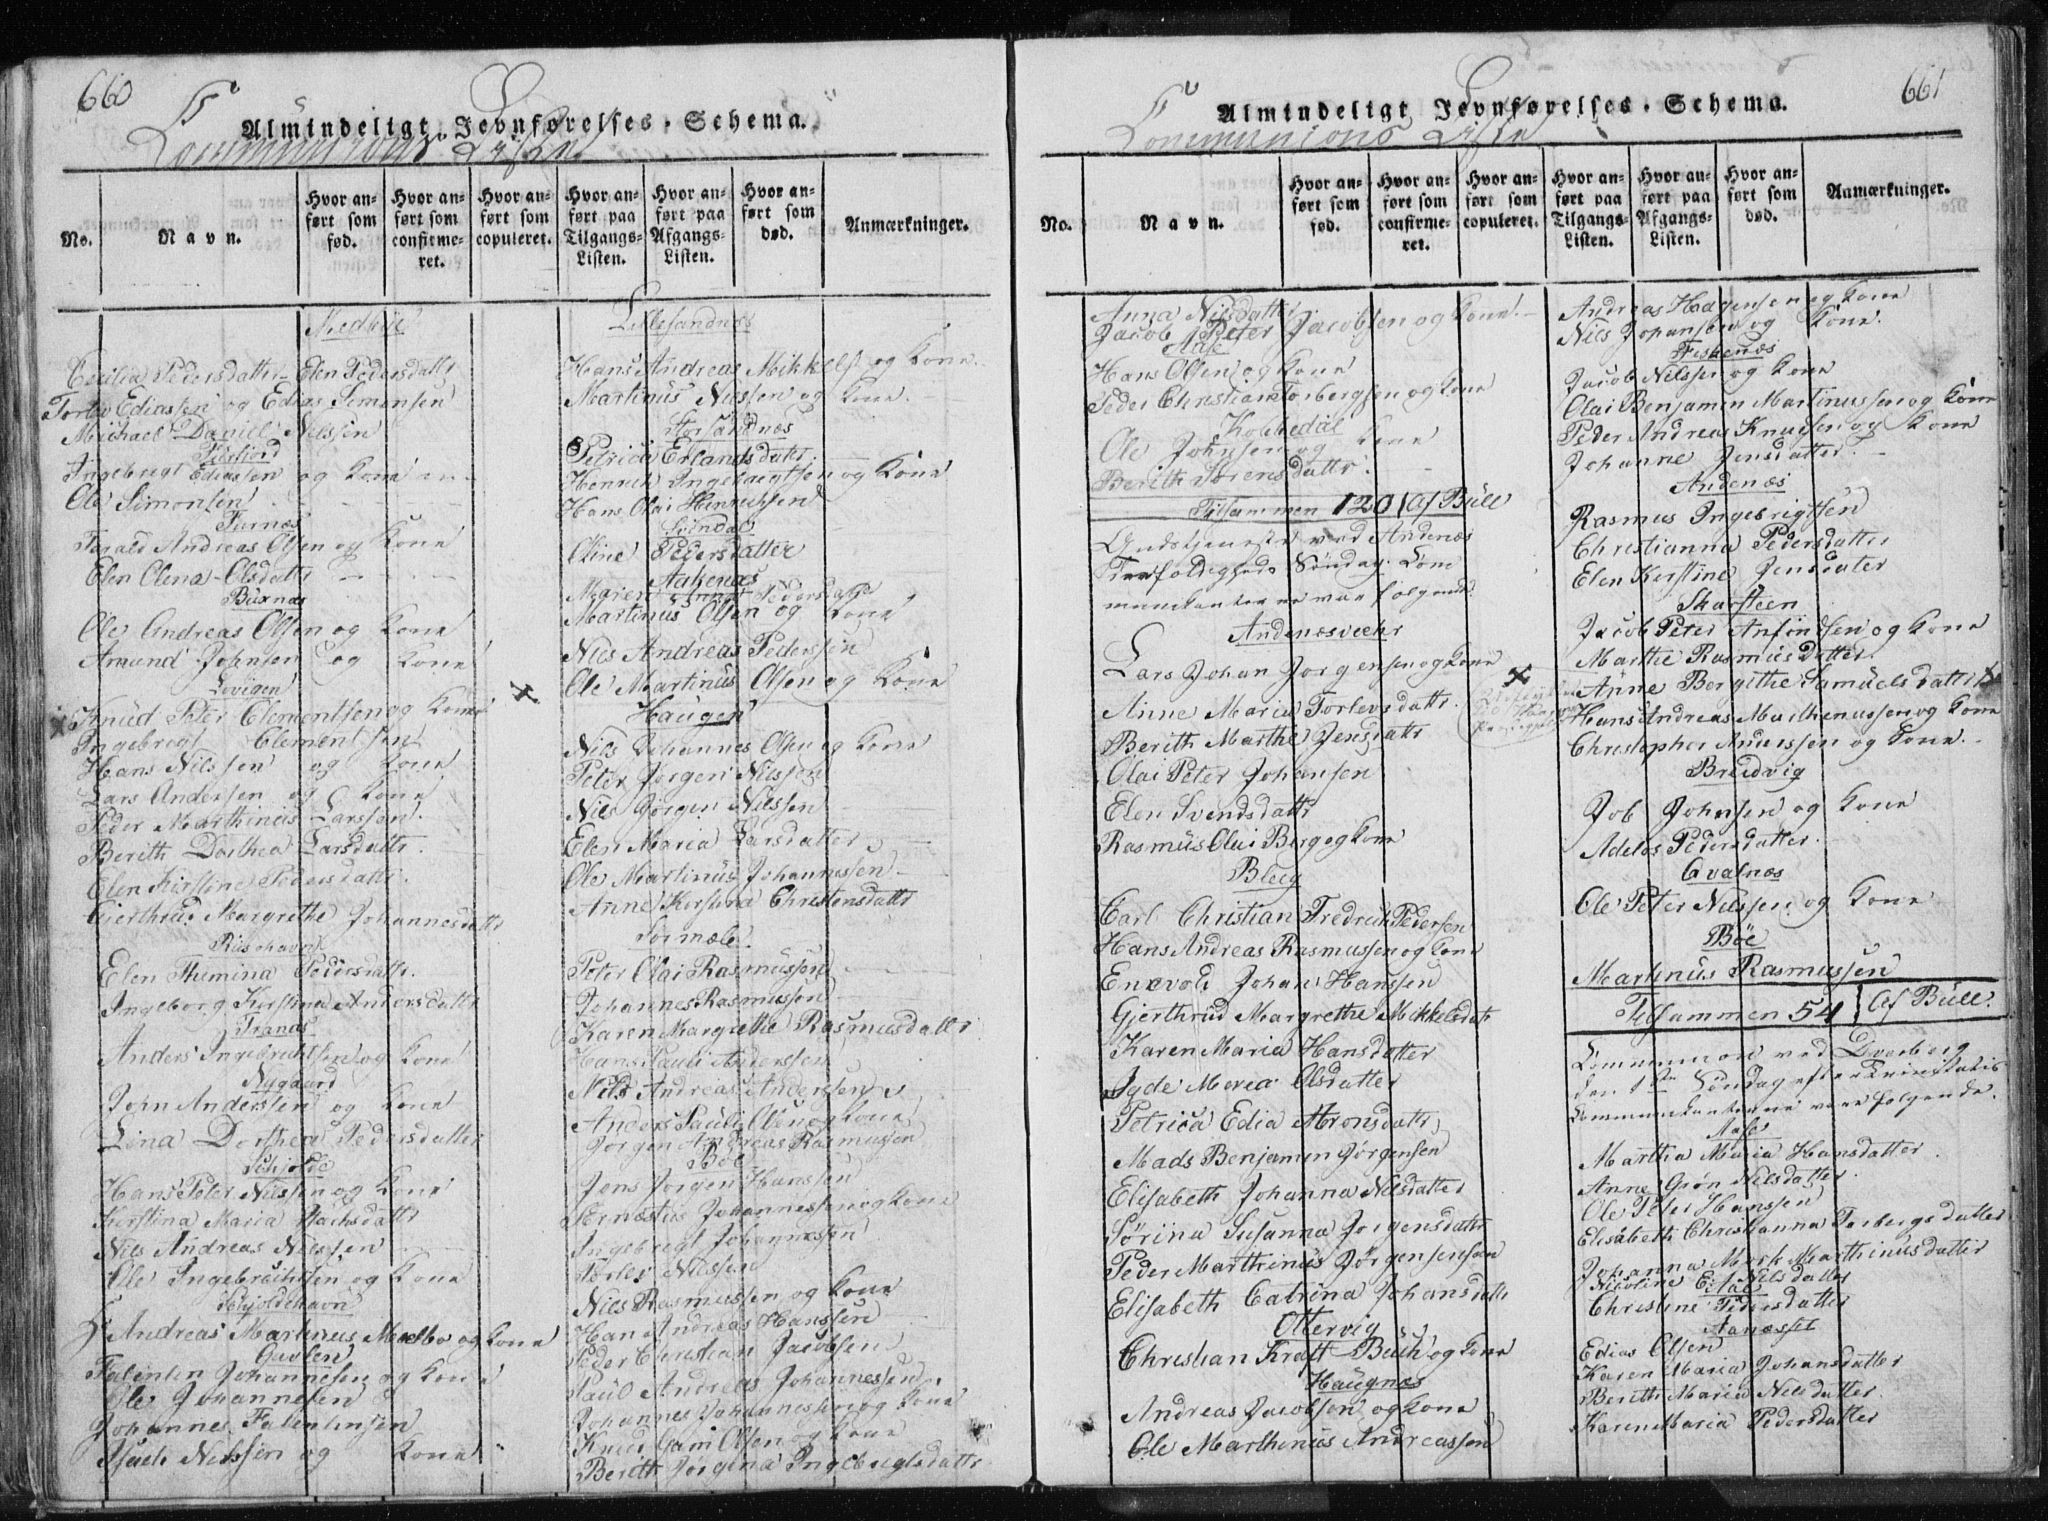 660
Almindeligt Jevnførelses-Schema.
Communions Liste
No.
Navn.
Hvor anført som fød.
Hvor anført som confirmeret.
Hvor anført som copuleret.
Hvor anført paa Tilgangs-Listen.
Hvor anført paa Afgangs-Listen.
Hvor anført som død.
Anmærkninger.
Cecilia Pedersdatter Elen Pedersdattr
Torlev Ediassen og Edias Simonsen
Michael Daniel Nilssen
Ingebrigt Ediassen og Kone
Ole Simonsen
Turnæs
Andreas Olsen og Kone
Elen Olena Olsdattr
Buxnæs
Ole Andreas Olsen og Kone
Amund Johnsen og Kone
Knud Peter Clementsen og Kone
Ingebrigt Clementsen
Hans Nilssen og Kone
Lars Andersen og Kone
Peder Marthinus Larssen.
Berith Dorthea Larsdattr.
Elen Kirstine Pedersdattr.
Gierthrud Margrethe Johannesdattr
Elen Pedersdattr.
Ingeborg Kirstina Andersdattr
Tranæs
Anders Ingebrichtsen og Kone
Nygaard
John Anderssen og Kone
Lina Dorthea Pedersdatter
Hans Peter Nilssen og Kone
Kirstina Maria
Nils Andreas Nilssen
Ole Ingebrichtsen og Kone
Andreas Martinus og Kone
Falentin Johannesen og Kone
Ole Johannesen
Johannes Falentinsen
Nilssen og Kone
Lillesandnæs
Hans Andreas Mikkels og Kone
Martinus Nilssen og Kone.
Storsandnæs
Petrica Erlandsdatr.
Henrich Ingebrigtsen og Kone
Hans Olai Henrichsen
Oline Pedersdatter
Maren Anna Pedersdatter
Martinus Olsen og Kone
Nils Andreas Pederssen
Ole Martinus Olsen og Kone
Haugen
Nils Johannes Olsen og Kone
Peter Jørgen Nilssen
Nils Jørgen Nilssen
Elen Maria Larsdatter
Ole Martinus Johannessen
Anne Kirstina Christensdattr
Peter Olai Rasmussen
Johannes Rasmussen
Karen Margrethe Rasmusdattr
Hans Pauli Anderssen
Nils Andreas Anderssen
Anders Pauli Olsen og Kone
Jørgen Andreas Rasmussen
Böe
Jens Jørgen Hanssen
Ernæstus Johannessen og Kone
Ingebrigt Johannessen
Torles Nilssen
Nils Rasmussen og Kone
Hans Andreas Hanssen
Peder Christian Jacobsen
Paul Andreas Johannessen
Johannes Johannessen og Kone
Knud Olsen og Kone
Berith Jørgina Ingebrigtsdattr
661
Almindeligt Jevnførelses-Schema.
Communions Liste
No.
Navn.
Hvor anført som fød.
Hvor anført som confirmeret.
Hvor anført som copuleret.
Hvor anført paa Tilgangs-Listen.
Hvor anført paa Afgangs-Listen.
Hvor anført som død.
Anmærkninger.
Anna Nilsdatter
Jacob Peter Jacobsen og Kone.
Aase
Hans Olsen og Kone
Peder Christian Torbergsen og Kone
Kobbedal
Ole Johnsen og Kone
Berith Sørensdattr.
Tilsammen 120 Af Büll
Gudstieneste ved Andenæs
Trefoldigheds Søndag. Communikanterne var følgende
Andenæsveehr
Lars Johan Jørgensen og Kone
Anne Maria Torlevsdattr.
Berith Marthe Jensdattr
Olai Peter Johansen
Elen Svendsdattr
Rasmus Olai Berg og Kone
Bleeg
Carl Christian Fredrich Pedersen
Hans Andreas Rasmussen og Kone
Enevold Johan Hanssen
Gjerthrud Margrethe Mikkelsdatr
Karen Maria Hansdatter
Olsdatter
Petrica Edia Aronsdattr
Mads Benjamin Jørgensen
Elisabeth Johanna Nilsdatter
Sørina Susanna Jørgensdatr
Peder Marthinus Jørgensen
Elisabeth Catrina Johansdattr
Ottervig
Christian Kraft Büch og Kone
Haugnæs
Andreas Jacobsen og Kone
Ole Marthinus Andreassen
Andreas Haagensen og Kone
Nils Johansen og Kone.
Fiskenæs
Jacob Nilssen og Kone
Olai Benjamin Martinussen og Kone
Peder Andreas Knudsen og Kone
Johanne Jensdatter.
Andenæs
Rasmus Ingebrigtsen
Christianna Pedersdatter
Elen Kirstine Jensdatter
Skarsteen
Jacob Peter Anfindsen og Kone
Marthe Rasmusdatter
Anne Bergithe Samuelsdattr
Hans Andreas Marthinussen og Kone
Christopher Anderssen og Kone.
Breidvig
Job Johnsen og Kone
Adelos Pedersdatter
Qvalnæs
Ole Peter Nilssen og Kone
Böe
Martinus Rasmussen
Tilsammen 54 Af Büll.
Communion ved Dverberg
den 1ste Søndag efter Trinitatis
Communikanterne vare følgende.
Aase
Martha Maria Hansdatter
Anne Grøn Nilsdatter
Ole Peter Hanssen
Elisabeth Christianna Torbergsdatter
Johanna Mark Marthinusdatter
Nicoline Nilsdatter
Christine Pedersdatter
Edias Olsen
Karen Maria Johansdatter
Berith Maria Nilsdatter.
Karen Maria Pedersdatter